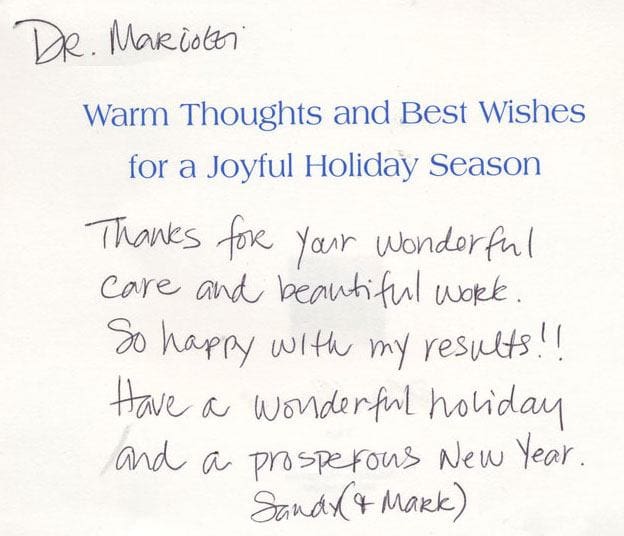 Dr. Mariotti
Warm Thoughts and Best Wishes
for a Joyful Holiday Season
Thanks for your wonderful
care and beautiful work.
So happy with my results!!
Have a wonderful holiday
and a prosperous New Year.
Sandy (& Mark)